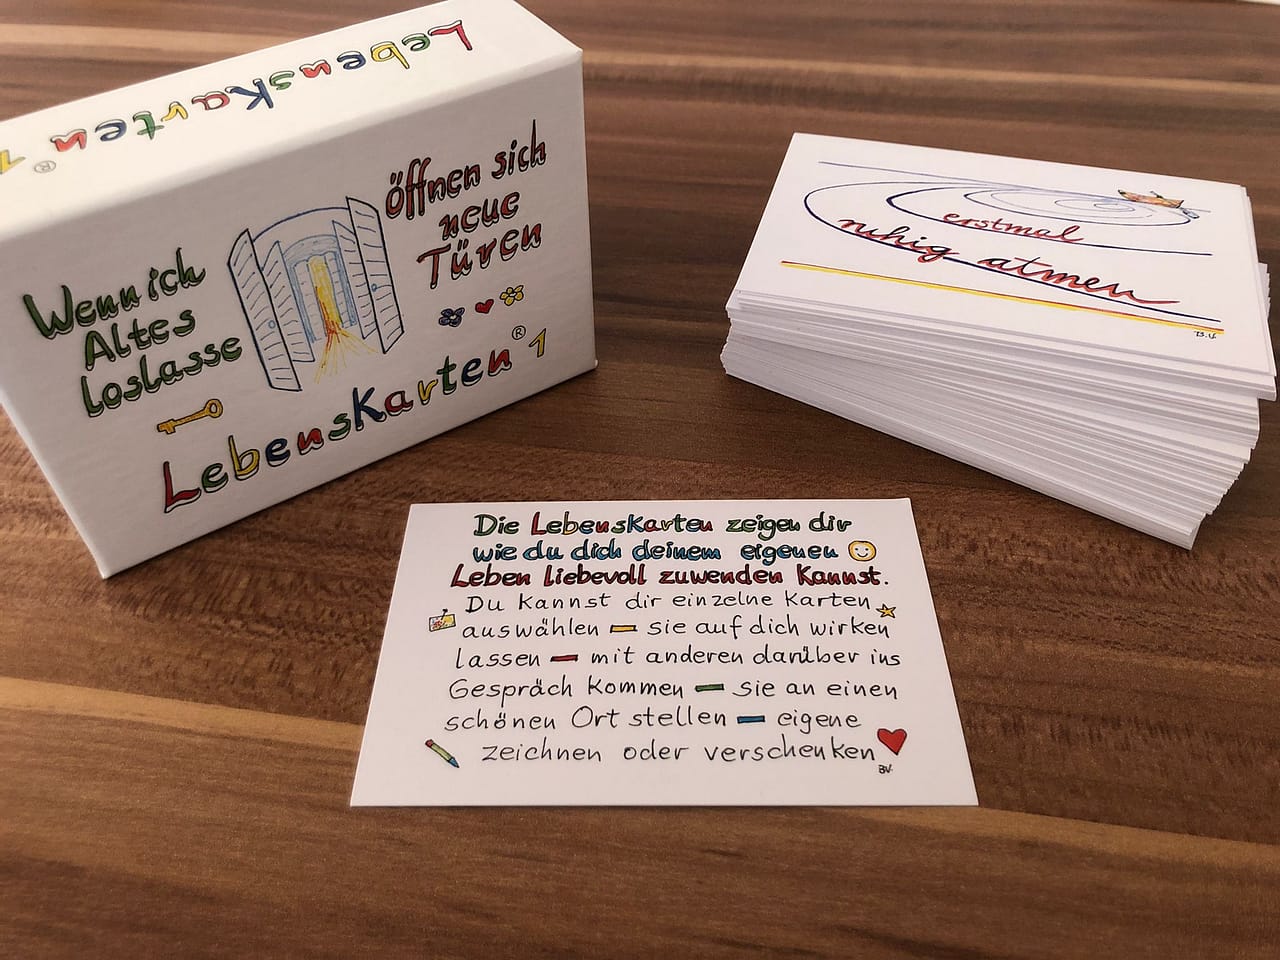 Lebenskarten ® 1
Wenn ich
Altes
loslasse
öffnen sich
neue
Türen
Lebenskarten ® 1
erstmal
ruhig atmen
B.V.
Die Lebenskarten zeigen dir
wie du dich deinem eigenen
Leben liebevoll zuwenden kannst.
Du kannst dir einzelne Karten
auswählen – sie auf dich wirken
lassen – mit anderen darüber ins
Gespräch kommen – sie an einen
schönen Ort stellen – eigene
zeichnen oder verschenken
BV.